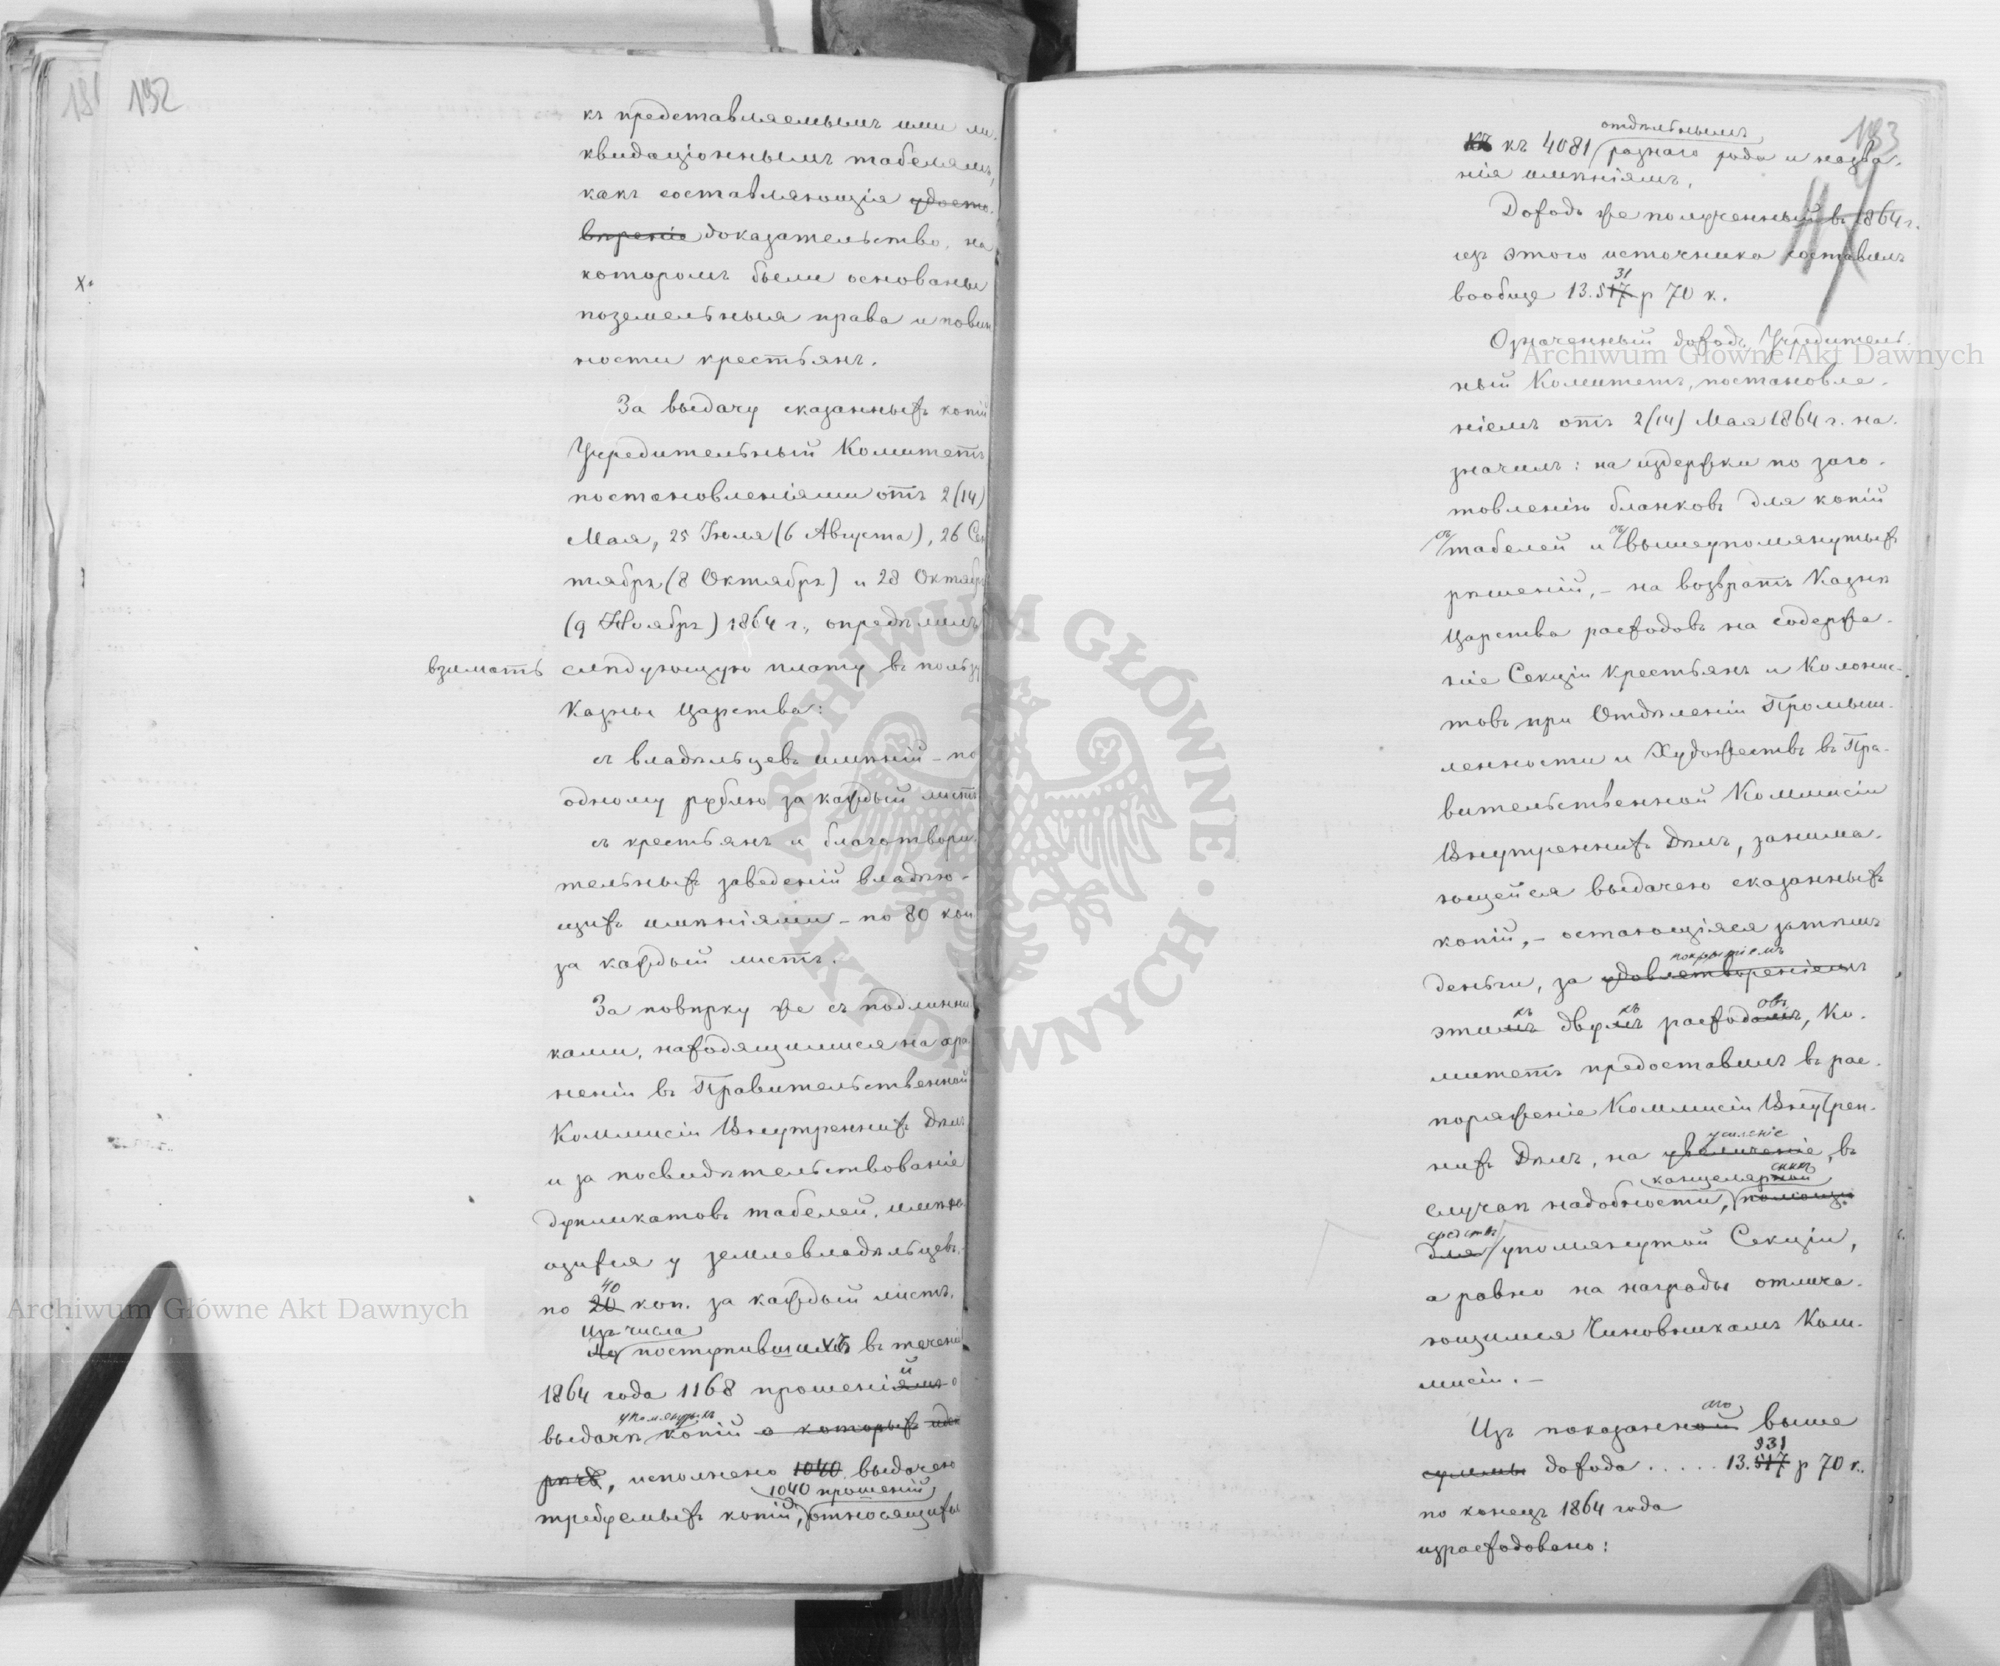 192
къ представляемымъ ими ли-
квидаціоннымъ табелямъ,
какъ составляющія удосто-
вѣреніе доказательство, на
которомъ были основаны
поземельныя права и повин
ности крестьянъ.
За выдачу сказанныхъ копій
Учредительный Комитетъ
постановленіями отъ 2 (14)
Мая, 25 Іюля (6 Августа), 26 Сен
тября (8 Октября) и 28 Октября
(9 Ноября) 1864 г., опредѣлилъ
взимать слѣдующую плату въ пользу
Казны Царства:
съ владѣльцевъ имѣній – по
одному рублю за каждый листъ
съ крестьянъ и благотвори-
тельныхъ заведеній владѣю-
щихъ имѣніями – по 80 коп
за каждый листъ.
За повѣрку же съ подлинни
ками, находящимися на хра
неніи въ Правительственной
Коммисіи Внутреннихъ Дѣлъ
и за посвидѣтельствованіе
дупликатовъ табелей, имѣю
щихся у землевладѣльцевъ,
40
по 20 коп. за каждый листъ.
Изъ числа
По поступившихъ въ теченіи
й
1864 года 1168 прошеніямъ о
упомянутыхъ
выдачѣ копій о которыхъ
, исполнено 1040 выдачею
1040 прошеній
требуемыхъ копій, относящихся
193
отдѣльнымъ
къ къ 4081 разнаго рода и назва-
нія имѣніямъ.
Доходъ же полученный въ 1864 г.
изъ этого источника составилъ
31
вообще 13.517 р 70 к.
Означенный доходъ, Учредитель-
ный Комитетъ, постановле-
ніемъ отъ 2 (14) Мая 1864 г. на-
значилъ: на издержки по заго-
товленію бланковъ для копій
съ табелей и съ вышеупомянутыхъ
рѣшеній, – на возвратъ Казнѣ
Царства расходовъ на содержа-
ніе Секціи Крестьянъ и Колонис-
товъ при Отдѣленіи Промыш-
ленности и Художествъ въ Пра-
вительственной Коммисіи
Внутреннихъ Дѣлъ, занима-
ющейся выдачею сказанныхъ
копій, – остающіяся затѣмъ
покрытіемъ
деньги, за удовлетвореніемъ
хъ хъ овъ
этимъ двумъ расходамъ, Ко-
митетъ предоставилъ въ рас-
поряженіе Коммисіи Внутрен-
усиленіе
нихъ Дѣлъ, на увеличеніе, въ
канцелярской скихъ
случаѣ надобности, помощи
средствъ
для упомянутой Секціи,
а равно на награды отлича-
ющимся Чиновникамъ Ком-
мисіи. –
аго
Изъ показанной выше
931
суммы дохода ..... 13.517 р 70 к.
по конецъ 1864 года
израсходовано:
Archiwum Główne Akt Dawnych
Archiwum Główne Akt Dawnych
ARCHIWUM GŁÓWNE · AKT DAWNYCH ·